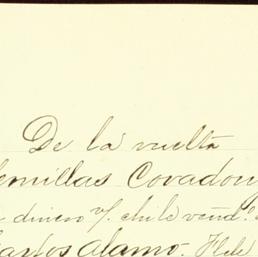 De la vuelta
emillas Covadon
dinero y. chile vend.
Carlos Alamo. Flete